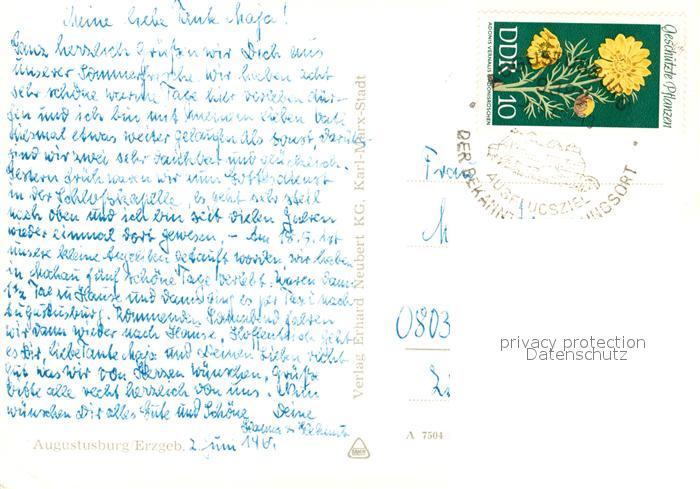 Meine liebe Tante Maja!
Ganz herzlich grüßen wir Dich aus
unserer Sommerfrische. Wir haben acht
sehr schöne warme Tage hier verleben dür-
fen und ich bin mit meinem lieben Vati
diesmal etwas weiter gelaufen als sonst, darüber
sind wir zwei sehr dankbar und glücklich.
Gestern früh waren wir zum Gottesdienst
in der Schloßkapelle, es geht sehr steil
nach oben und ich bin seit vielen Jahren
wieder einmal dort gewesen. - Am 18.5. ist
unsere kleine getauft worden wir haben
in fünf schöne Tage verlebt. Waren dann
1½ Tag zu Hause und dann ging es per Taxi nach
Augustusburg. Kommenden Sonnabend fahren
wir dann wieder nach Hause. Hoffentlich geht
es Dir, liebe Tante Maja und Deinen Lieben recht
gut was wir von Herzen wünschen. Grüße
bitte alle recht herzlich von uns. Wir
wünschen Dir alles Gute und Schöne Deine
Augustusburg/Erzgeb. 2. Juni
Verlag Erhard Neubert KG, Karl-Marx-Stadt
A 7504
Geschützte Pflanzen
ADONIS VERNALIS
DDR 10
DER BEKANNTE
AUSFLUGSZIEL
Frau
M
0803
privacy protection
Datenschutz